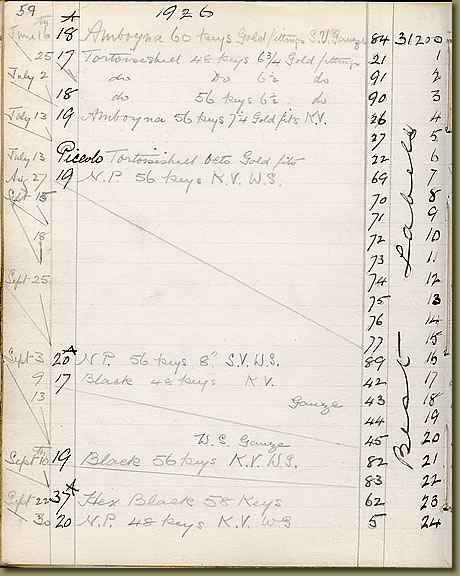 59 1926
June 16th 18A Amboyna 60 keys Gold fittings S.V. Gauze 84 31200
25 17 Tortoiseshell 48 keys 6 3/4 Gold fittings 21 1
July 2 do Do 6 1/2 do 91 2
18 do 56 keys 6 1/2 do 90 3
July 13 19 Amboyna 56 keys 7 1/4 Gold fits K.V. 26 4
27 5
July 13 Piccolo Tortoiseshell Octo Gold fits 22 6
Aug 27 19 N.P. 56 keys K.V. W.S. 69 7
Sept 15 70 8
71 9
18 72 10
73 11
Sept 25 74 12
75 13
76 14
77 15
Sept 3 20A N.P. 56 keys 8" S.V. W.S. 89 16
9 17 Black 48 keys K.V. 42 17
13 Gauze 43 18
44 19
W.S. Gauze 45 20
Sept 10th 19 Black 56 keys K.V. W.S. 82 21
83 22
Sept 22 37A Hex Black 58 Keys 62 23
30 20 N.P. 48 keys K.V. WS 5 24
Best Labels